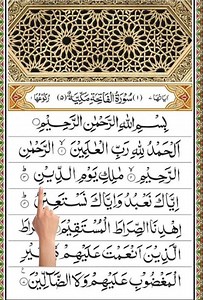 اٰیاتها ۷ (۱) سُوْرَةُ الْفَاتِحَةِ مَكِّيَّةٌ (۵) رکوعها ۱
بِسْمِ اللهِ الرَّحْمٰنِ الرَّحِيْمِ
اَلْحَمْدُ لِلّٰهِ رَبِّ الْعٰلَمِيْنَ ۙ الرَّحْمٰنِ
الرَّحِيْمِ ۙ مٰلِكِ يَوْمِ الدِّيْنِ ؕ
اِيَّاكَ نَعْبُدُ وَاِيَّاكَ نَسْتَعِيْنُ ؕ
اِهْدِنَا الصِّرَاطَ الْمُسْتَقِيْمَ
الَّذِيْنَ اَنْعَمْتَ عَلَيْهِمْ غَيْرِ
الْمَغْضُوْبِ عَلَيْهِمْ وَلَا الضَّآلِّيْنَ